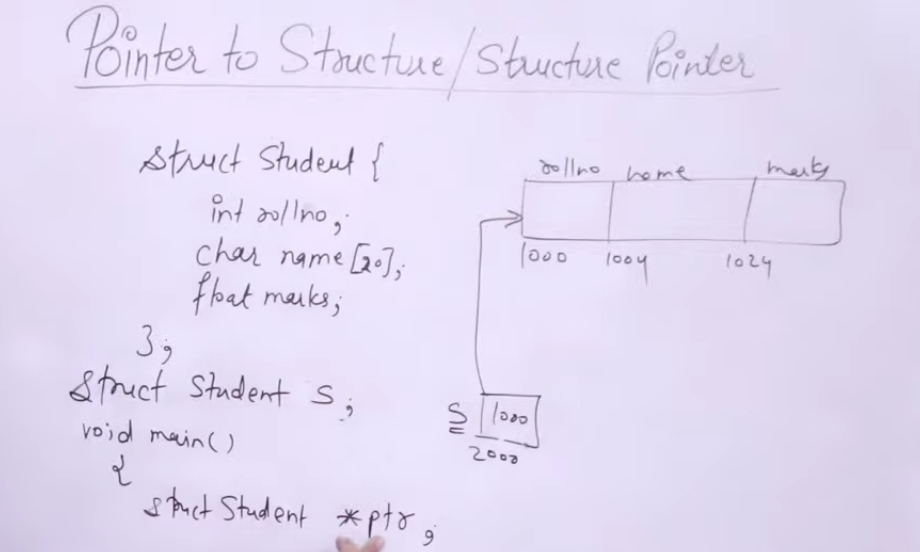 Pointer to Structure/Structure Pointer
struct Student {
int rollno;
char name[20];
float marks;
};
struct Student S;
void main()
{
struct Student *ptr;
rollno name marks
1000 1004 1024
S 1000
2000